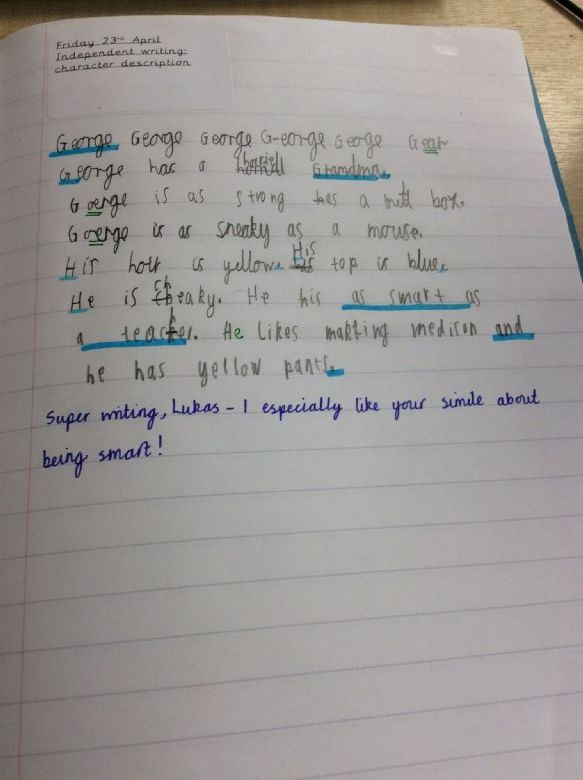 Friday 23rd April
Independent writing:
character description
George George George G-eorge George Gear
George has a horrid Grandma.
Goerge is as strong has a metl box.
Goerge is as sneaky as a mouse.
His hair is yellow. His top is blue.
He is cheaky. He his as smart as
a teacher. He likes makking medison and
he has yellow pants.
Super writing, Lukas - I especially like your simile about
being smart!